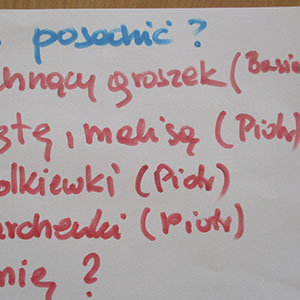 posadzić?
chnący groszek (Basia
ętę, melisą (Piotr)
olkiewki (Piotr)
archewki (Piotr)
nię ?